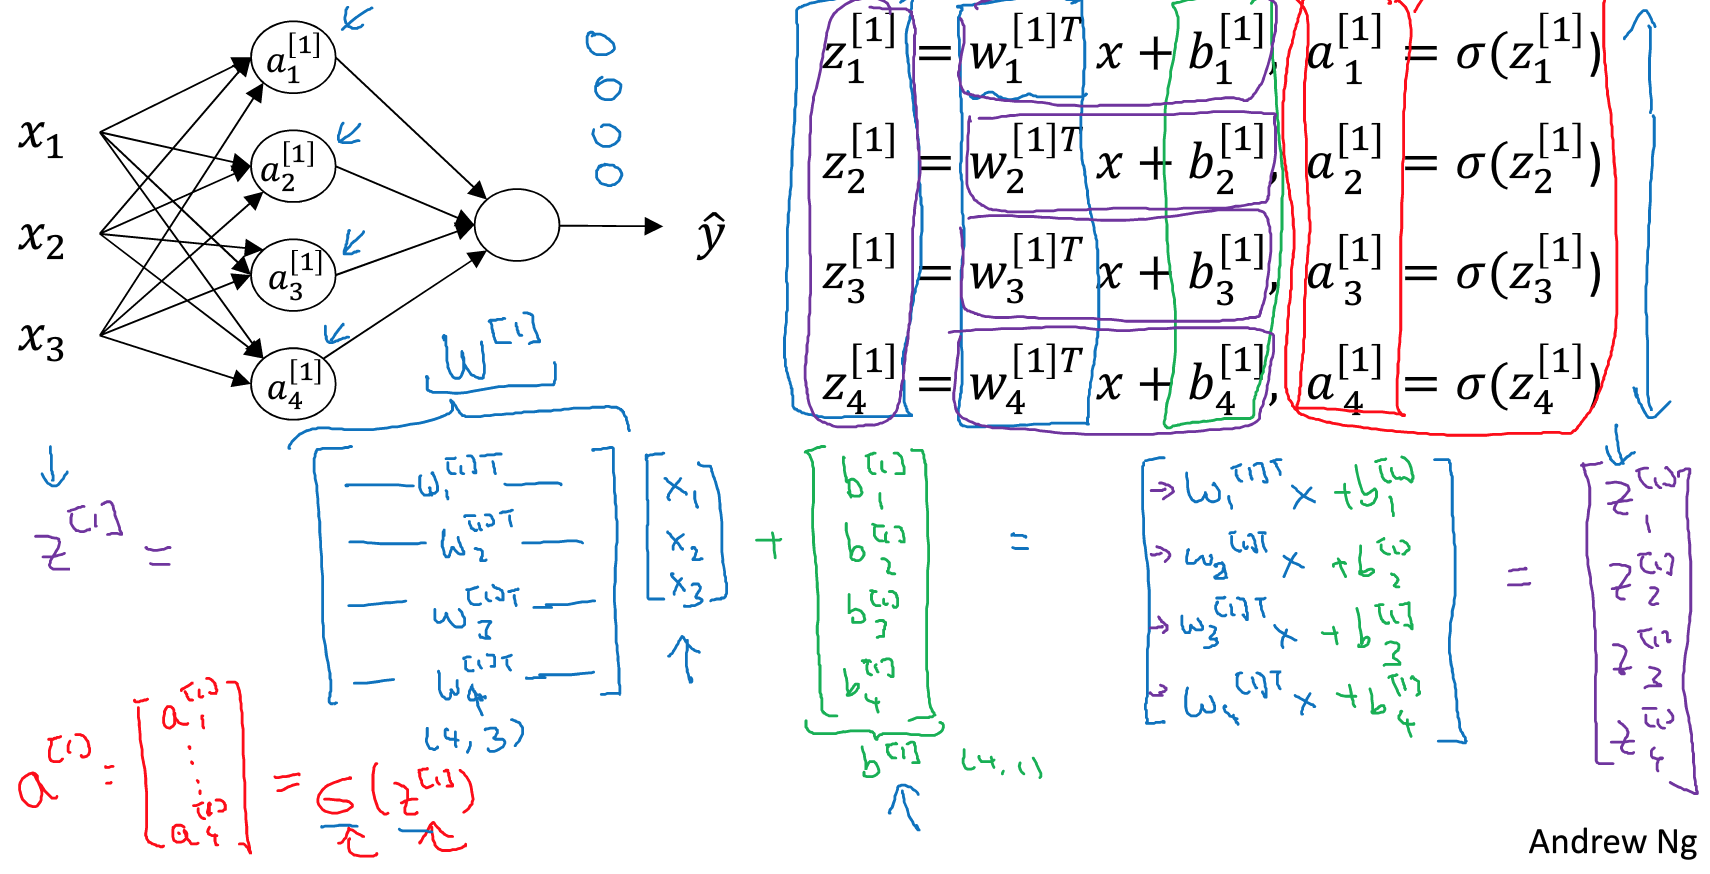 x₁
x₂
x₃
a₁^[1]
a₂^[1]
a₃^[1]
a₄^[1]
ŷ
z₁^[1] = w₁^[1]T x + b₁^[1], a₁^[1] = σ(z₁^[1])
z₂^[1] = w₂^[1]T x + b₂^[1], a₂^[1] = σ(z₂^[1])
z₃^[1] = w₃^[1]T x + b₃^[1], a₃^[1] = σ(z₃^[1])
z₄^[1] = w₄^[1]T x + b₄^[1], a₄^[1] = σ(z₄^[1])
W^[1]
z^[1] =
w₁^[1]T
w₂^[1]T
w₃^[1]T
w₄^[1]T
(4,3)
x₁
x₂
x₃
+
b₁^[1]
b₂^[1]
b₃^[1]
b₄^[1]
b^[1] (4,1)
=
→ w₁^[1]T x + b₁^[1]
→ w₂^[1]T x + b₂^[1]
→ w₃^[1]T x + b₃^[1]
→ w₄^[1]T x + b₄^[1]
=
z₁^[1]
z₂^[1]
z₃^[1]
z₄^[1]
a^[1] = [a₁^[1] ⋮ a₄^[1]] = σ(z^[1])
Andrew Ng